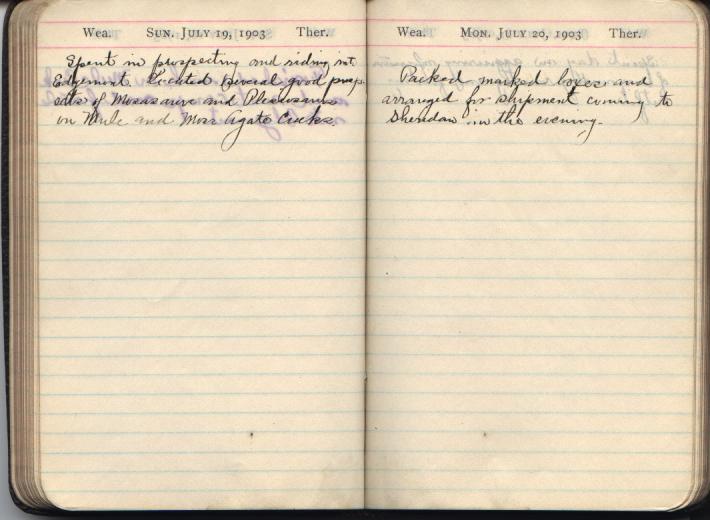 Wea. SUN. JULY 19, 1903 Ther.
Spent in prospecting and riding int
Edgemont. Located several good prosp
ects of Mosasaurs and Plesiosaurs
on Mule and Moss Agate Creeks.
Wea. MON. JULY 20, 1903 Ther.
Packed marked boxes and
arranged for shipment coming to
Sheridan in the evening.